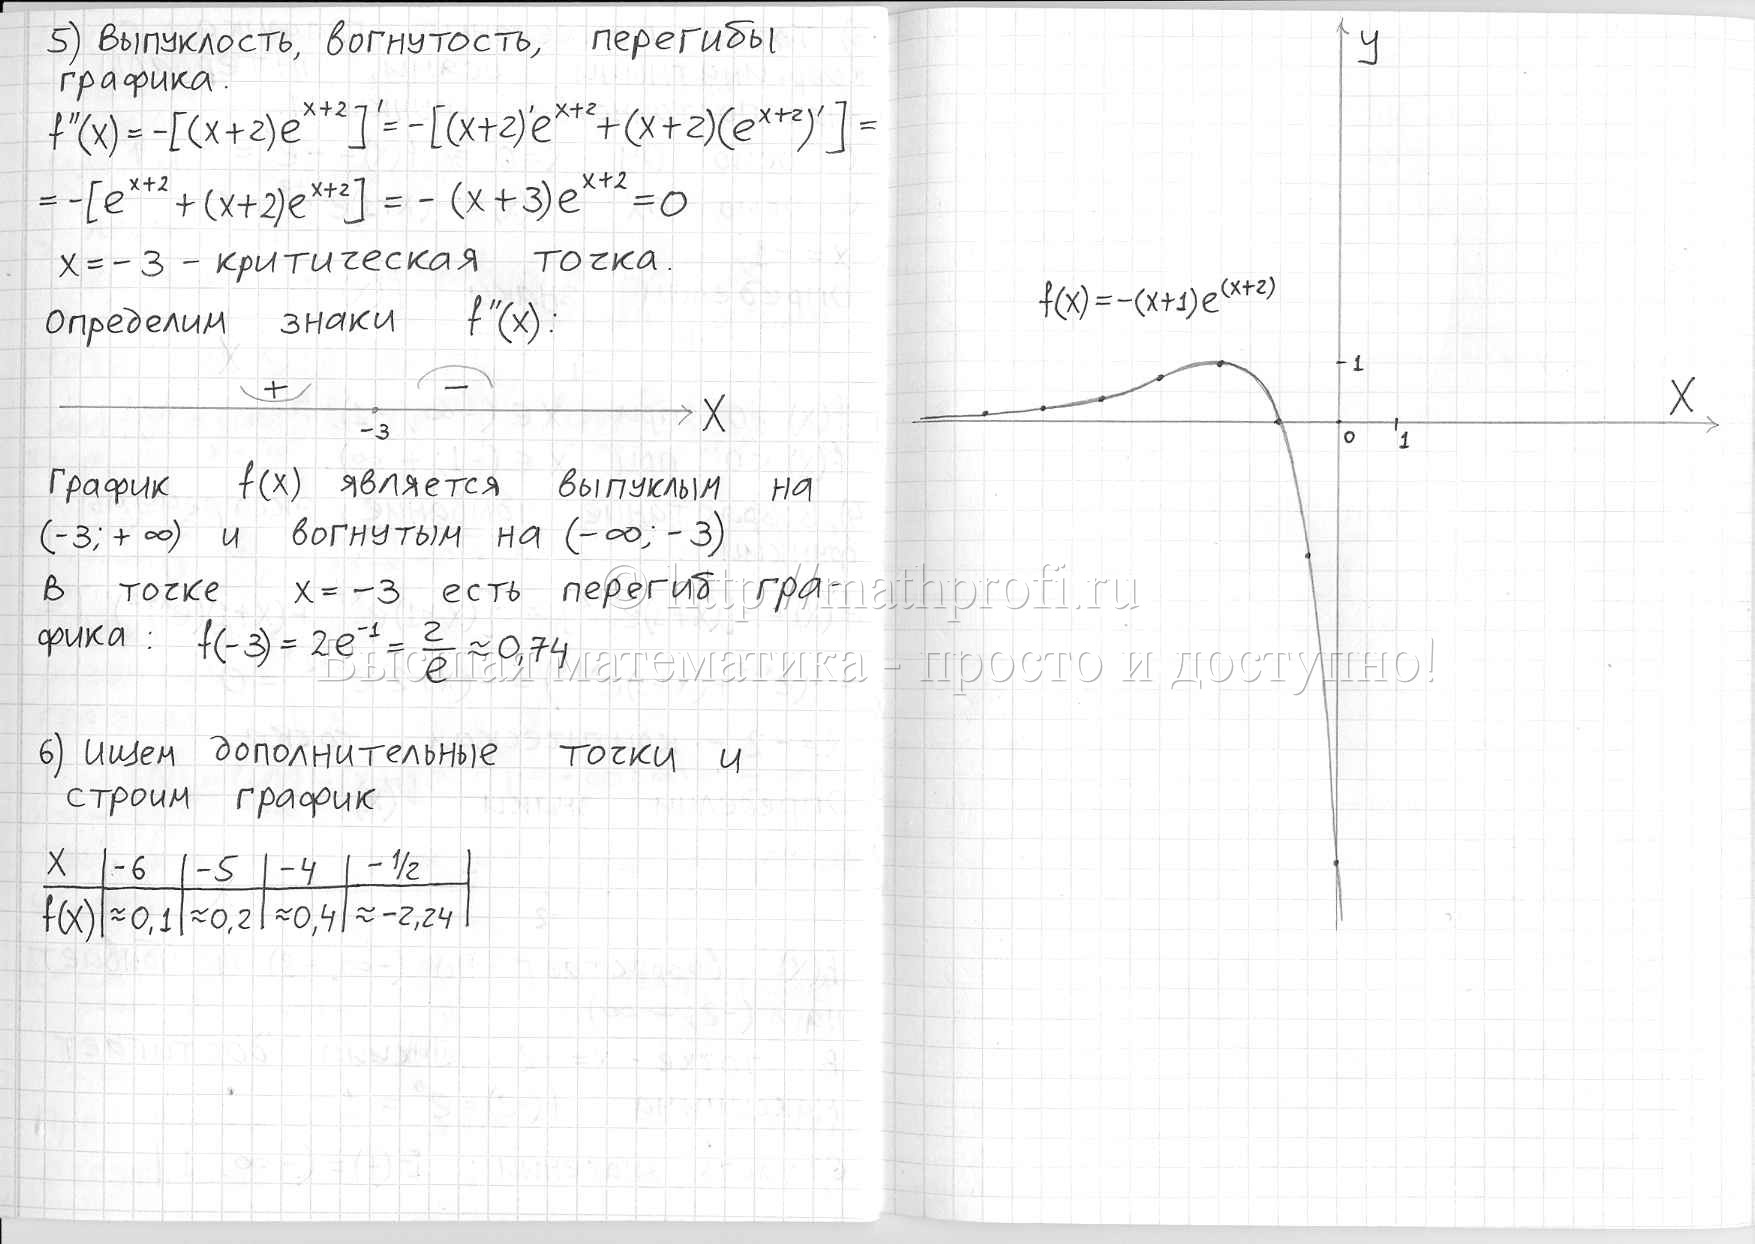 5) Выпуклость, вогнутость, перегибы
графика.
f''(x) = -[(x+2)e^{x+2}]' = -[(x+2)'e^{x+2} + (x+2)(e^{x+2})'] =
= -[e^{x+2} + (x+2)e^{x+2}] = - (x+3)e^{x+2} = 0
x = -3 - критическая точка.
Определим знаки f''(x):
+ -
-3 X
График f(x) является выпуклым на
(-3; +∞) и вогнутым на (-∞; -3)
В точке x = -3 есть перегиб гра-
фика: f(-3) = 2e^{-1} = 2/e ≈ 0,74
6) Ищем дополнительные точки и
строим график
X | -6 | -5 | -4 | -1/2 |
f(x) | ≈0,1 | ≈0,2 | ≈0,4 | ≈-2,24 |
y
f(x) = -(x+1)e^{(x+2)}
1
X
0 1
© http://mathprofi.ru
Высшая математика - просто и доступно!